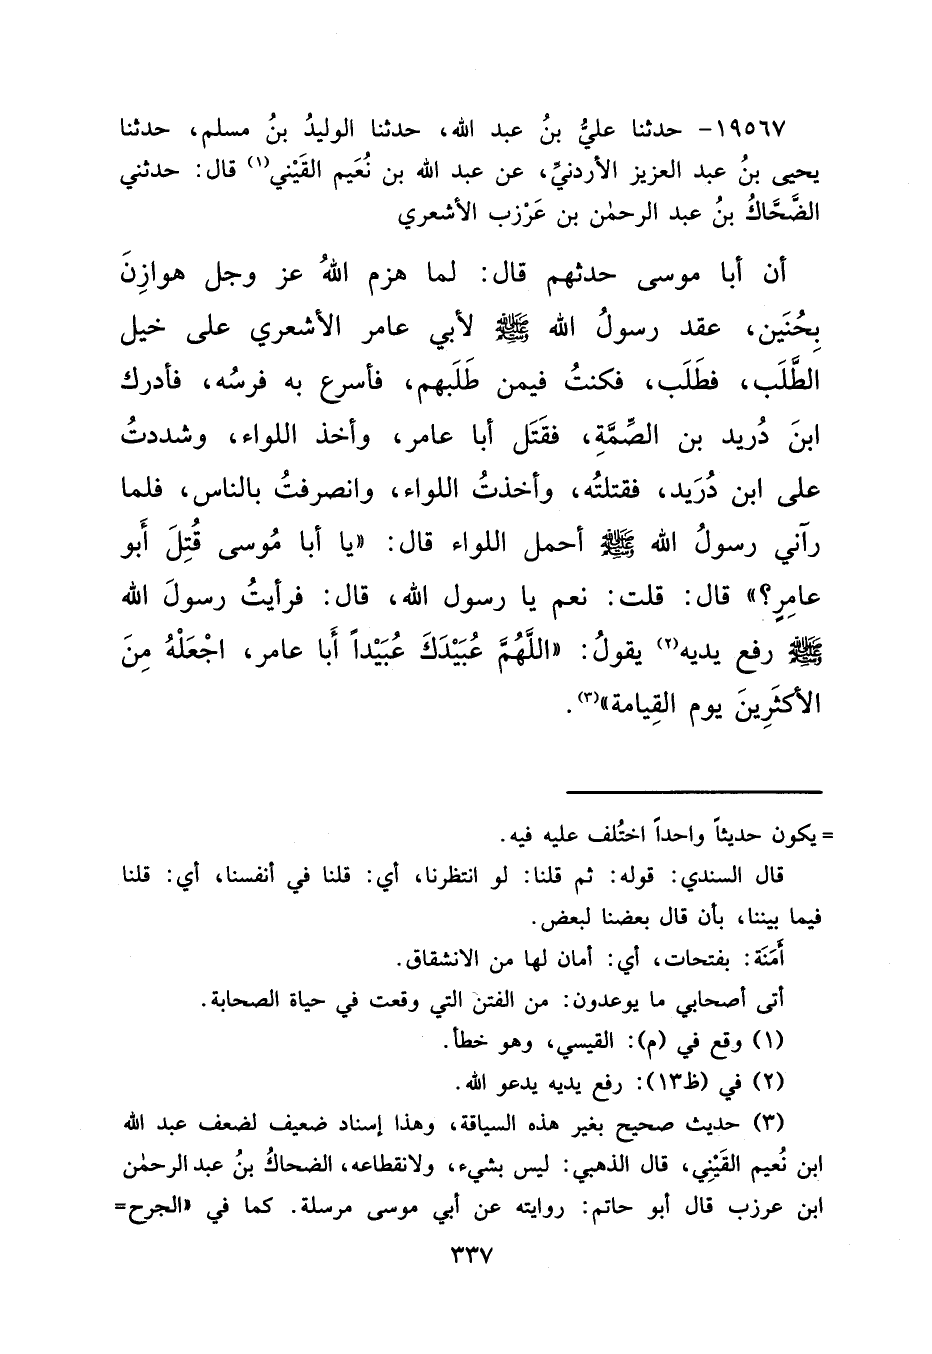 ١٩٥٦٧- حدثنا عليُّ بنُ عبد الله، حدثنا الوليدُ بنُ مسلم، حدثنا
يحيى بنُ عبد العزيز الأردنيِّ، عن عبد الله بن نُعَيم القَيْني(١) قال: حدثني
الضَّحَّاكُ بنُ عبد الرحمٰن بن عَرْزب الأشعري
أن أبا موسى حدثهم قال: لما هزم اللهُ عز وجل هوازِنَ
بِحُنَين، عقد رسولُ الله ﷺ لأبي عامر الأشعري على خيل
الطَّلَب، فطَلَب، فكنتُ فيمن طَلَبهم، فأسرع به فرسُه، فأدرك
ابنَ دُريد بن الصِّمَّةِ، فقَتَل أبا عامر، وأخذ اللواء، وشددتُ
على ابن دُرَيد، فقتلتُه، وأخذتُ اللواء، وانصرفتُ بالناس، فلما
رآني رسولُ الله ﷺ أحمل اللواء قال: «يا أبا مُوسى قُتِلَ أَبو
عامِرٍ؟» قال: قلت: نعم يا رسول الله، قال: فرأيتُ رسولَ الله
ﷺ رفع يديه(٢) يقولُ: «اللَّهُمَّ عُبَيْدَكَ عُبَيْداً أَبا عامر، اجْعَلْهُ مِنَ
الأكثَرِينَ يوم القِيامة»(٣).
= يكون حديثاً واحداً اختُلف عليه فيه.
قال السندي: قوله: ثم قلنا: لو انتظرنا، أي: قلنا في أنفسنا، أي: قلنا
فيما بيننا، بأن قال بعضنا لبعض.
أَمَنَة: بفتحات، أي: أمان لها من الانشقاق.
أتى أصحابي ما يوعدون: من الفتن التي وقعت في حياة الصحابة.
(١) وقع في (م): القيسي، وهو خطأ.
(٢) في (ظ١٣): رفع يديه يدعو الله.
(٣) حديث صحيح بغير هذه السياقة، وهذا إسناد ضعيف لضعف عبد الله
ابن نُعيم القَيْنِي، قال الذهبي: ليس بشيء، ولانقطاعه، الضحاكُ بنُ عبد الرحمٰن
ابن عرزب قال أبو حاتم: روايته عن أبي موسى مرسلة. كما في «الجرح=
٣٣٧